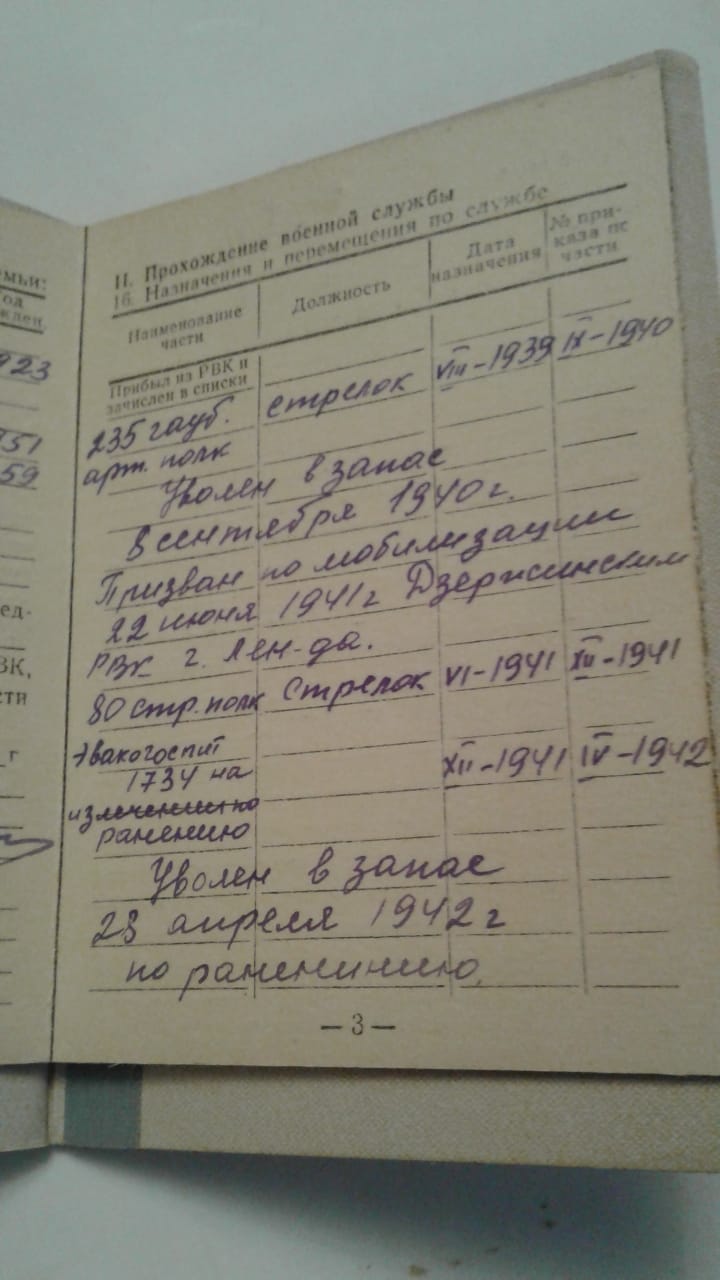 емьи:
Год
жден.
923
51
59
ед-
ВК,
сти
г
II. Прохождение военной службы
16. Назначения и перемещения по службе
Наименование части
Должность
Дата назначения
№ при-
каза по
части
Прибыл из РВК и
зачислен в списки
235 гауб. стрелок VIII-1939 IX-1940
арт. полк
Уволен в запас
8 сентября 1940 г.
Призван по мобилизации
22 июня 1941 г Дзержинским
РВК г. Лен-да.
80 стр. полк Стрелок VI-1941 XII-1941
Эвакогоспит
1734 на XII-1941 IV-1942
излечении по
ранению
Уволен в запас
28 апреля 1942 г
по раненинию
— 3 —